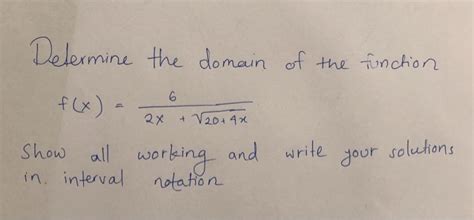 Determine the domain of the function
f(x) = 6 / (2x + √(20+4x))
Show all working and write your solutions
in interval notation